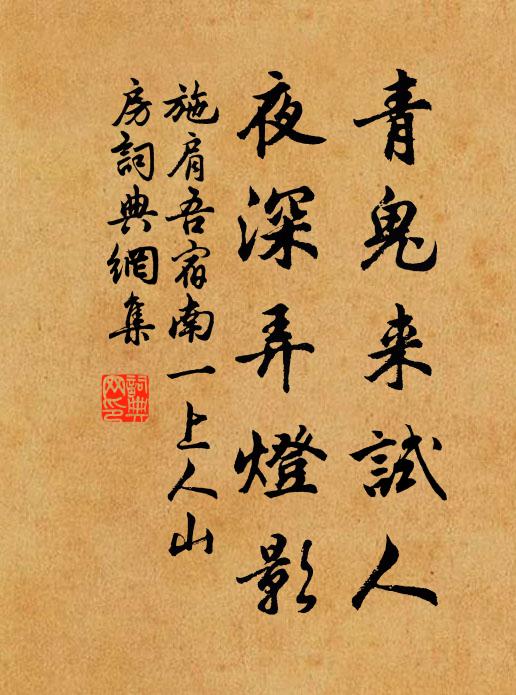 青鬼来試人
夜深弄燈影
施肩吾宿南一上人山
房詞典網集
詞典网印